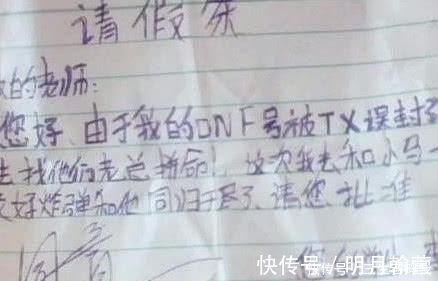 请假条
的老师：
您好，由于我的DNF号被TX误封了
去找他们老总拼命！这次我去和小马一
好炸弹和他同归于尽了，请您批准
快传号/明月翰萱